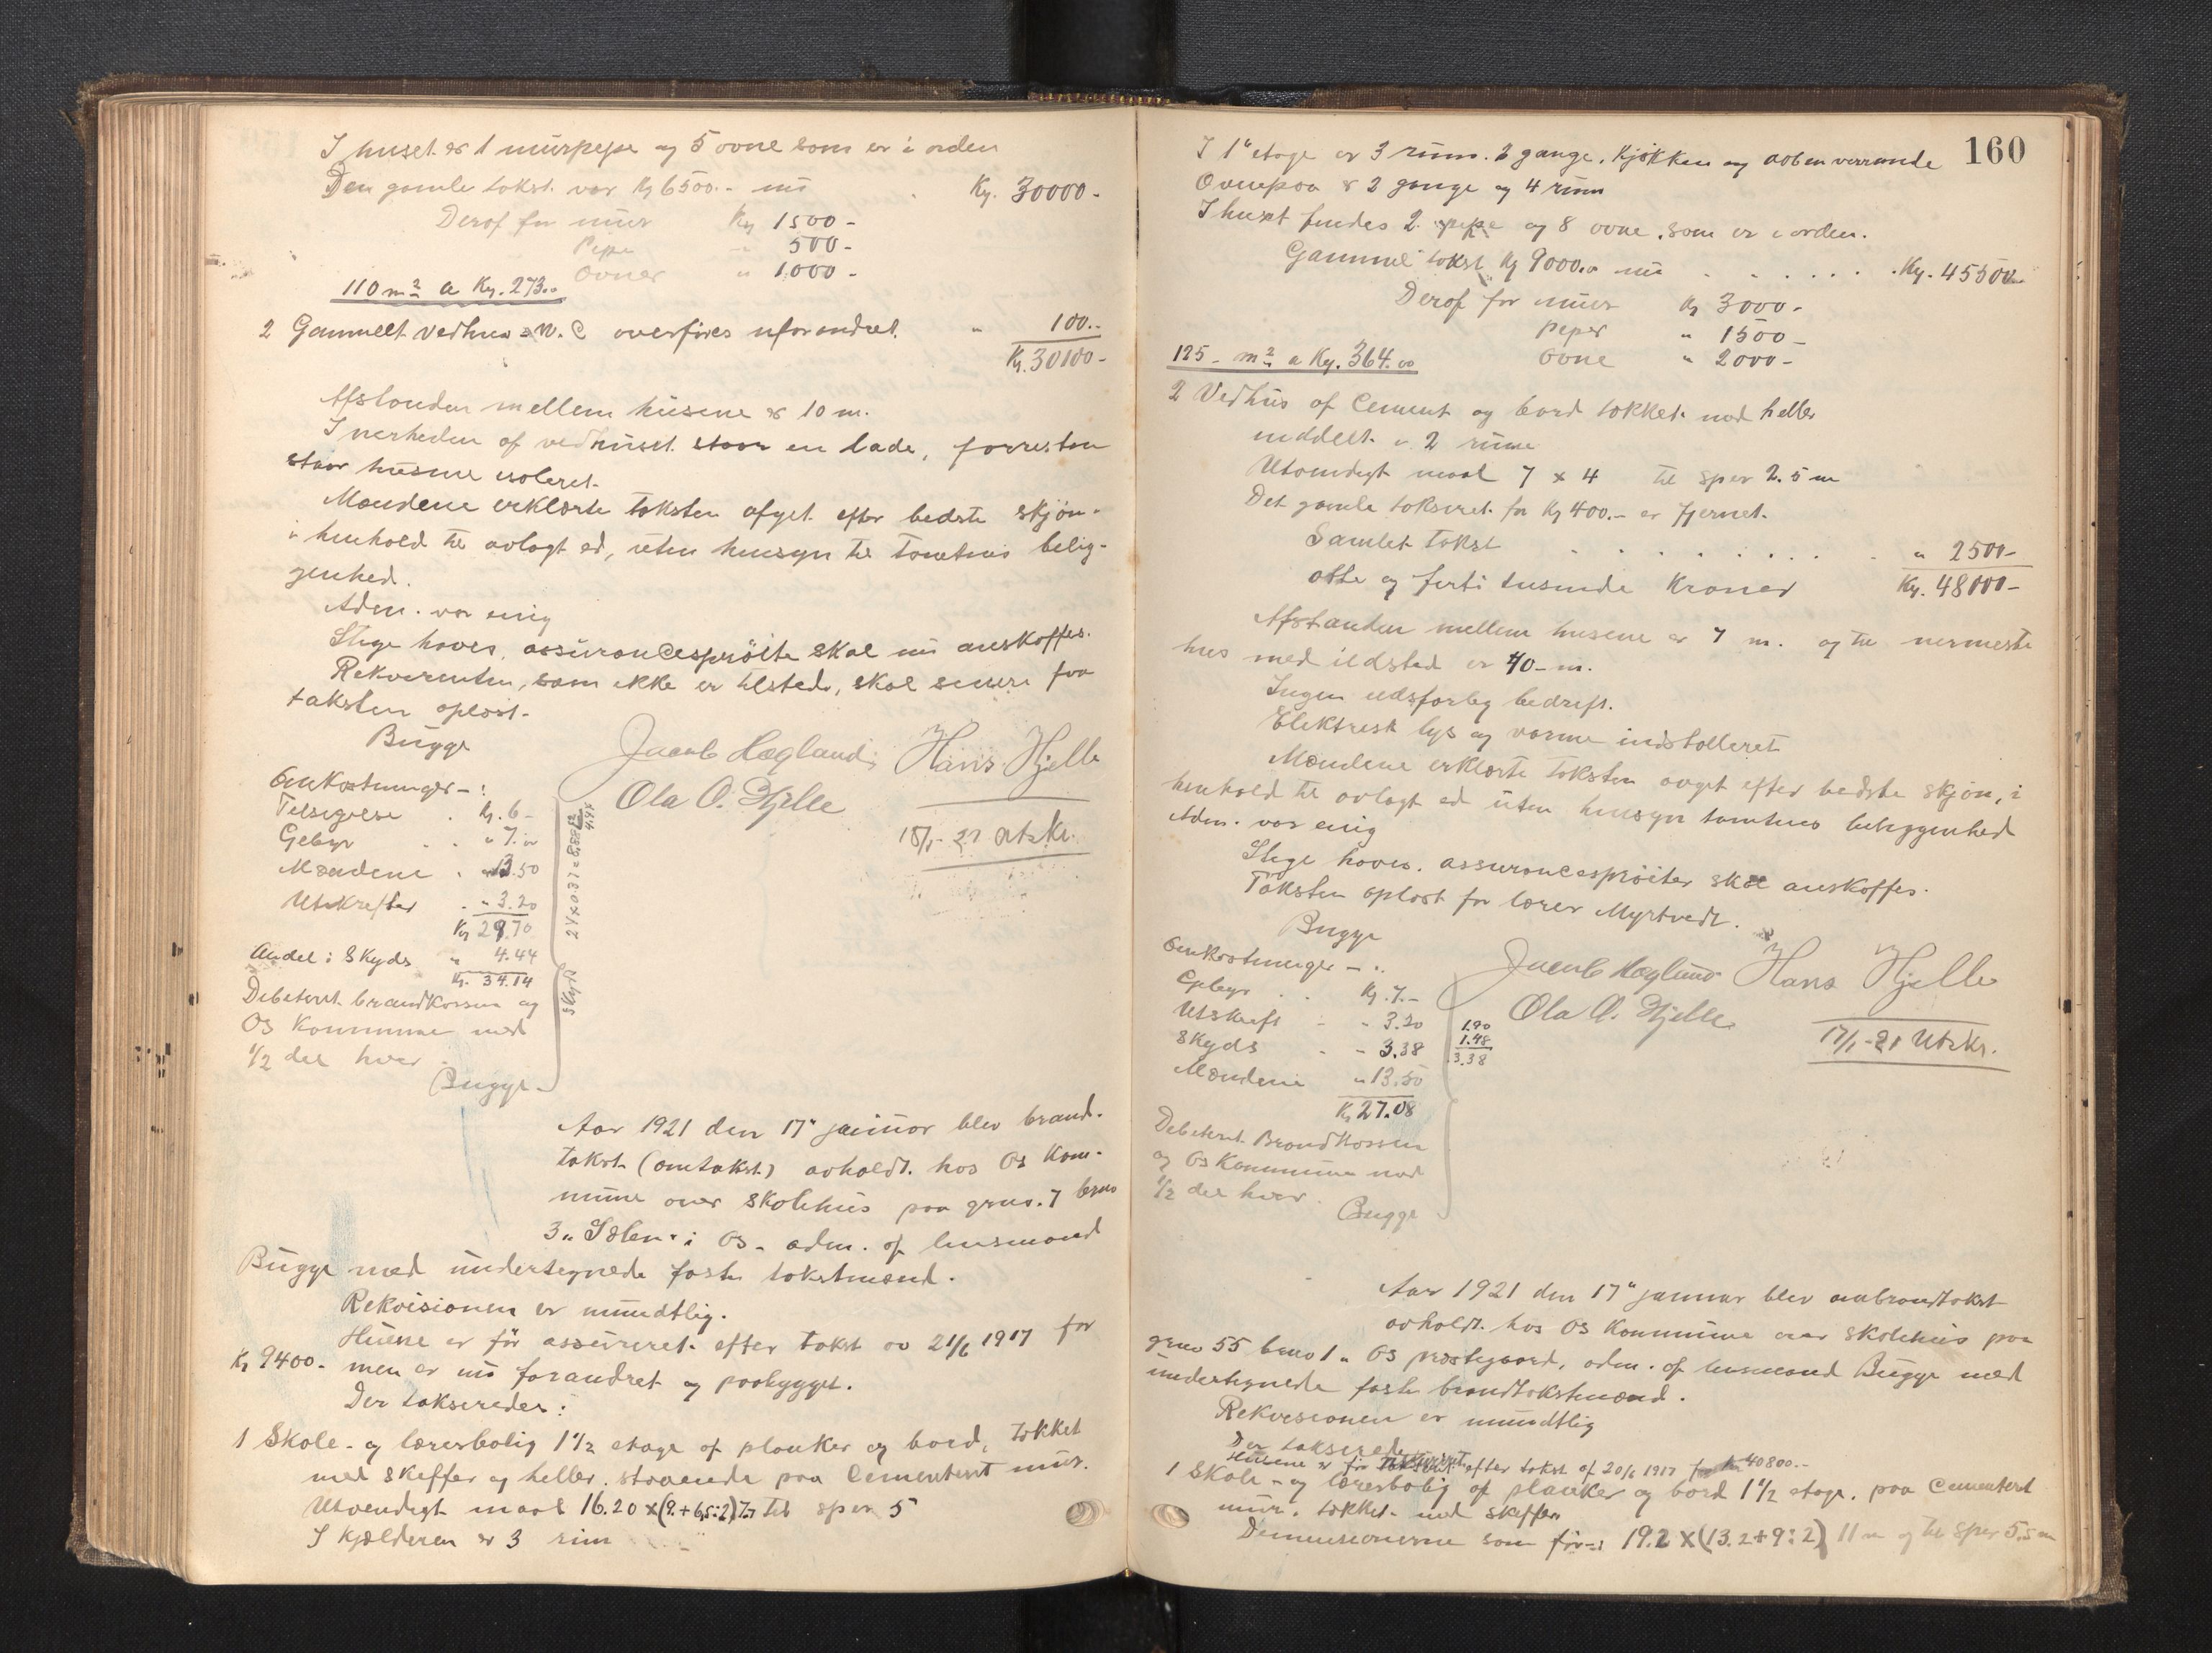 I huset er 1 murpipe og 5 ovne som er i orden
Den gamle takst var Kr 6500.- nu Kr. 30000-
Derof for mur Kr 1500-
Pipe " 500-
Ovner " 1000-
110 m² a Kr. 273.00
2 Gammelt vedhus & W.C overføres uforandret. " 100..
Kr. 30100-
Afstanden mellem husene er 10 m.
I nerheden af vedhuset staar en lade, forresten
staar husene isoleret.
Mændene erklærte taksten afget efter bedste skjön-
i henhold til avlagt ed, uten hensyn til tomtens belig-
genhed.
Adm. var enig
Stige haves, assurancesprøite skal nu anskaffes.
Rekvirenten, som ikke er tilstede, skal senere faa
taksten oplæst.
Bugge
Jacob Hægland Hans Hjelle
Ola O. Hjelle
18/1-21 Utskr.
Omkostninger-:
Tilsigelse Kr. 6-
Gebyr " 7.00
Mændene 13.50
Utskrefter " 3.20
Kr 29.70
Andel i Skyds " 4.44
Kr. 34.14
Debiteret brandkassen og
Os Kommune med
1/2 del hver.
Bugge-
Skyds 24 x 0.37 = 8.88 : 2
4.44
Aar 1921 den 17" januar blev brand-
takst (omtakst) avholdt hos Os Kom-
mune over skolehus paa grno. 7 brno
3 "Sælen" i Os - adm. af lensmand
Bugge med undertegnede faste takstmænd.
Rekvisionen er mundtlig.
Husene er før assureret efter takst av 21/6 1917 for
Kr 9400- men er nu forandret og paabygget.
Der taksereder:
1 Skole- og lærerbolig 1 1/2 etage af planker og bord, tækket
med skeffer og heller, staaende paa Cementeret mur.
Utvendigt maal 16.20 x (9.+6,5:2) 7.7 til sper 5
I Kjælderen er 3 rum
160
I 1" etage er 3 rum. 2 gange. Kjøkken og aaben verranda
Ovenpaa er 2 gange og 4 rum
I huset findes 2 pipe og 8 ovne, som er i orden.
Gammel takst Kr 9000.- nu . . . . . . Kr. 45500-
Derof for mur Kr 3000-
Piper " 1500-
Ovne " 2000-
125- m² a Kr. 364.00
2 Vedhus af Cement og bord tækket med heller
inddelt i 2 rum
Utvendigt maal 7 x 4 til sper 2.5 m
Det gamle takseret for Kr 400.- er fjernet.
Samlet takst . . . . . . . . " 2500-
otte og førti tusinde Kroner Kr. 48000-
Afstanden mellem husene er 7 m. og til nermeste
hus med ildsted er 40- m.
Ingen ildsfarlig bedrift.
Elektrisk lys og varme indstalleret
Mændene erklærte taksten avget efter bedste skjøn, i
henhold til avlagt ed uten hensyn tomtens beliggenhed
Adm. var enig
Stige haves. assurancesprøiter skal anskaffes.
Taksten oplæst for lærer Myrtvedt.
Bugge
Jacob Hægland Hans Hjelle
Ola O. Hjelle
17/1-21 Utskr.
Omkostninger-:
Gebyr . . Kr. 7.-
Utskrift - " 3.20
Skyds - - 3.38
Mændene " 13.50
Kr 27.08
1.90
1.48
3.38
Debiteret Brandkassen
og Os Kommune med
1/2 del hver.
Bugge
Aar 1921 den 17" januar blev ombrandtakst
avholdt hos Os Kommune over skolehus paa
grno 55 brno 1 " Os præstegaard, adm. af lensmand Bugge med
undertegnede faste brandtakstmænd.
Rekvisionen er mundtlig
Der takserede
Husene er før assureret efter takst af 20/6 1917 for Kr 40800.-
1 Skole- og lærerbolig af planker og bord 1 1/2 etage, paa Cementert
mur, tækket med skeffer
Dimensionerne som før-: 19.2 x (13.2+9:2) 11 m og til sper 5.5 m